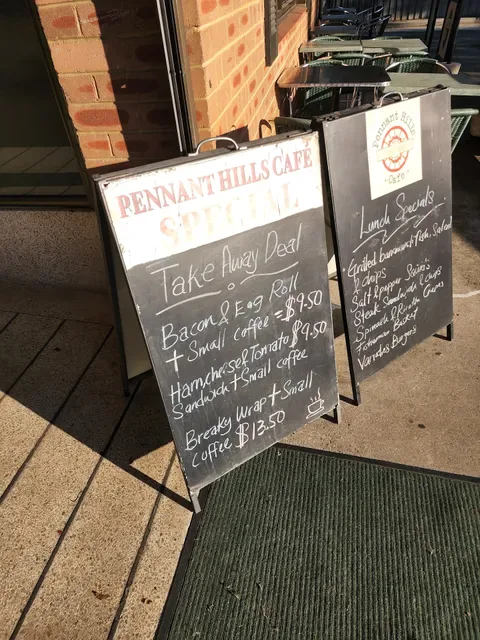 PENNANT HILLS CAFÉ
SPECIAL
Take Away Deal
Bacon & Egg Roll
+ Small coffee = $9.50
Ham cheese & Tomato $9.50
Sandwich + Small coffee
Breaky Wrap + Small
coffee $13.50
Pennant Hills
Cafe
Lunch Specials
Grilled barramundi fish, Salad
& chips
Salt & pepper
Steak Sandwich & chips
Spinach &
Basket
Burgers